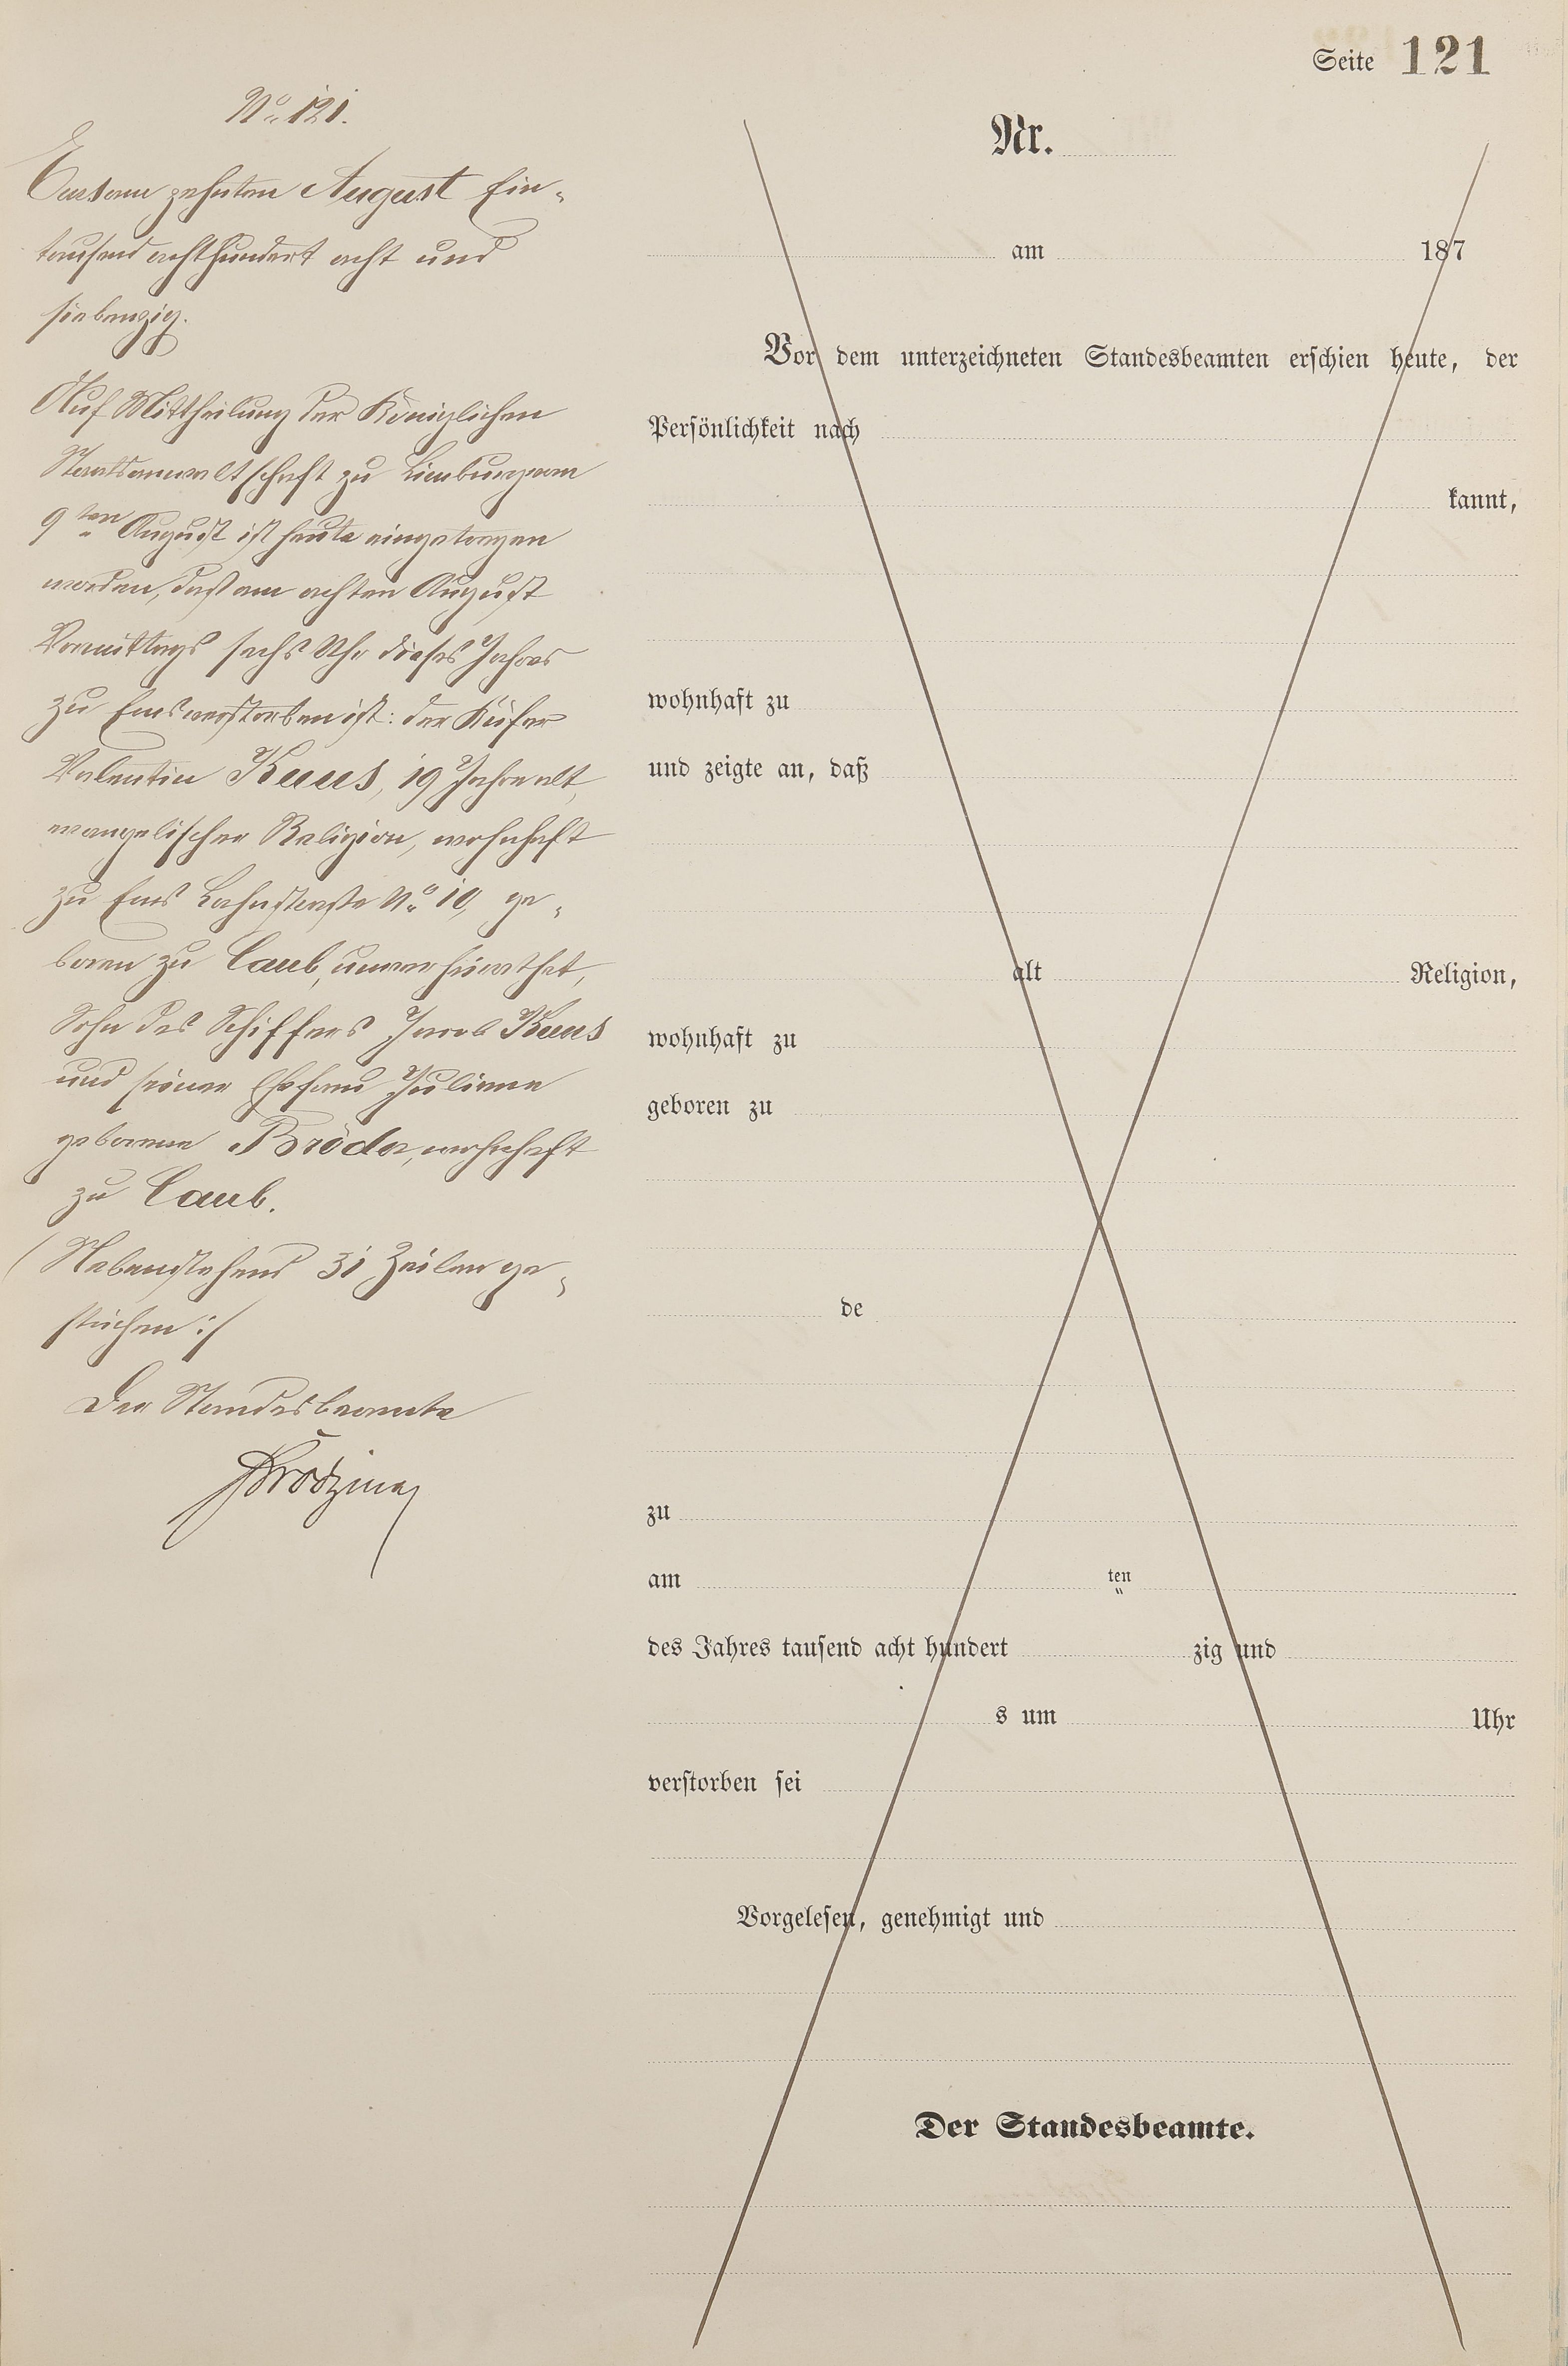 Seite 121
No. 121.
Ems am zehnten August Ein-
tausend achthundert acht und
siebenzig.
Auf Mittheilung der Königlichen
Staatsanwaltschaft zu Limburg vom
9ten August ist heute eingetragen
worden, daß am achten August
Vormittags sechs Uhr dieses Jahres
zu Ems verstorben ist: der Küfer
Valentin Kuus, 19 Jahre alt,
evangelischer Religion, wohnhaft
zu Ems Lahnstraße No. 10, ge-
boren zu Caub, unverheirathet,
Sohn des Schiffers Jacob Kuus
und seiner Ehefrau Juliane
geborene Bröder, wohnhaft
zu Caub.
(Nebenstehend 31 Zeilen ge-
strichen :/
Der Standesbeamte
Nr.
am 187
Vor dem unterzeichneten Standesbeamten erschien heute, der
Persönlichkeit nach
kannt,
wohnhaft zu
und zeigte an, daß
alt Religion,
wohnhaft zu
geboren zu
de
zu
am ten
des Jahres tausend acht hundert zig und
s um Uhr
verstorben sei
Vorgelesen, genehmigt und
Der Standesbeamte.